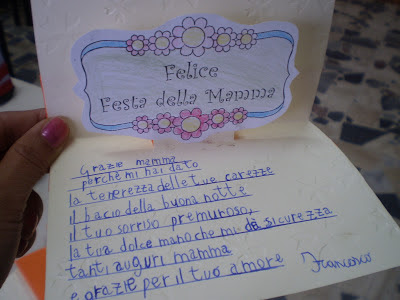 Felice
Festa della Mamma
Grazie mamma
perché mi hai dato
la tenerezza delle tue carezze
il bacio della buona notte
il tuo sorriso premuroso,
la tua dolce mano che mi dà sicurezza
tanti auguri mamma
e grazie per il tuo amore Francesco